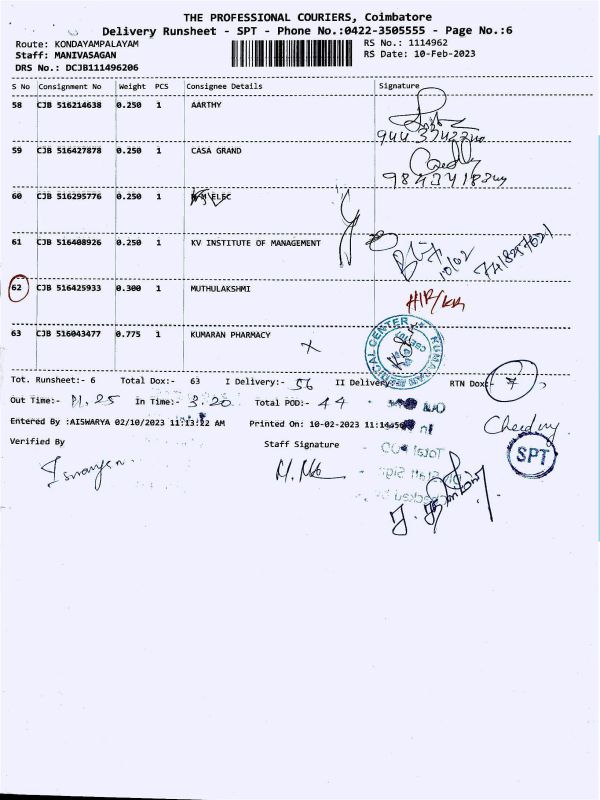 THE PROFESSIONAL COURIERS, Coimbatore
Delivery Runsheet - SPT - Phone No.:0422-3505555 - Page No.:6
Route: KONDAYAMPALAYAM RS No.: 1114962
Staff: MANIVASAGAN RS Date: 10-Feb-2023
DRS No.: DCJB111496206
S No Consignment No Weight PCS Consignee Details Signature
58 CJB 516214638 0.250 1 AARTHY
59 CJB 516427878 0.250 1 CASA GRAND
60 CJB 516295776 0.250 1 ELEC
61 CJB 516408926 0.250 1 KV INSTITUTE OF MANAGEMENT
10/02
62 CJB 516425933 0.300 1 MUTHULAKSHMI
63 CJB 516043477 0.775 1 KUMARAN PHARMACY X
KUMARAN MEDICAL CENTER
Tot. Runsheet:- 6 Total Dox:- 63 I Delivery:- 56 II Delivery RTN Dox:- 7
Out Time:- 11.25 In Time:- 3.20 Total POD:- 44
Entered By :AISWARYA 02/10/2023 11:13:22 AM Printed On: 10-02-2023
Verified By Staff Signature
SPT